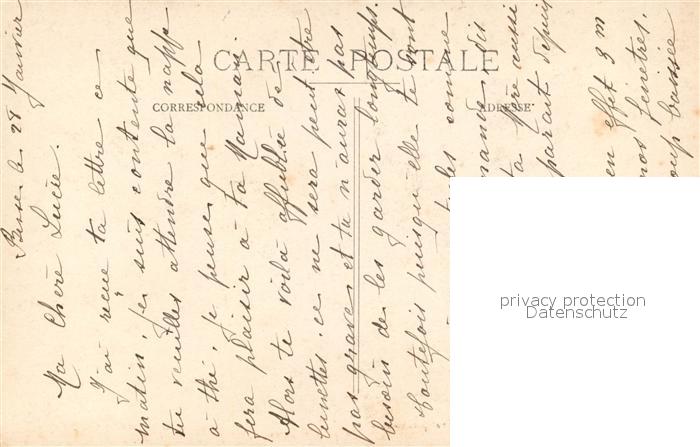 CARTE POSTALE
CORRESPONDANCE
ADRESSE
le 28 Janvier
Ma Chère Lucie.
J'ai reçue ta lettre ce
matin, je suis contente que
tu veuilles attendre la nappe
à thé, je pense que cela
fera plaisir à ta Maman.
Alors te voilà affublée de
lunettes, ce ne sera peut être
pas grave, et tu n'auras pas
besoin de les garder longtemps.
Toutefois puisqu'elle te sont
les comme
dis
ta Mère aussi
parait depuis
en effet 3 m
nos fenêtres.
baissée
privacy protection
Datenschutz